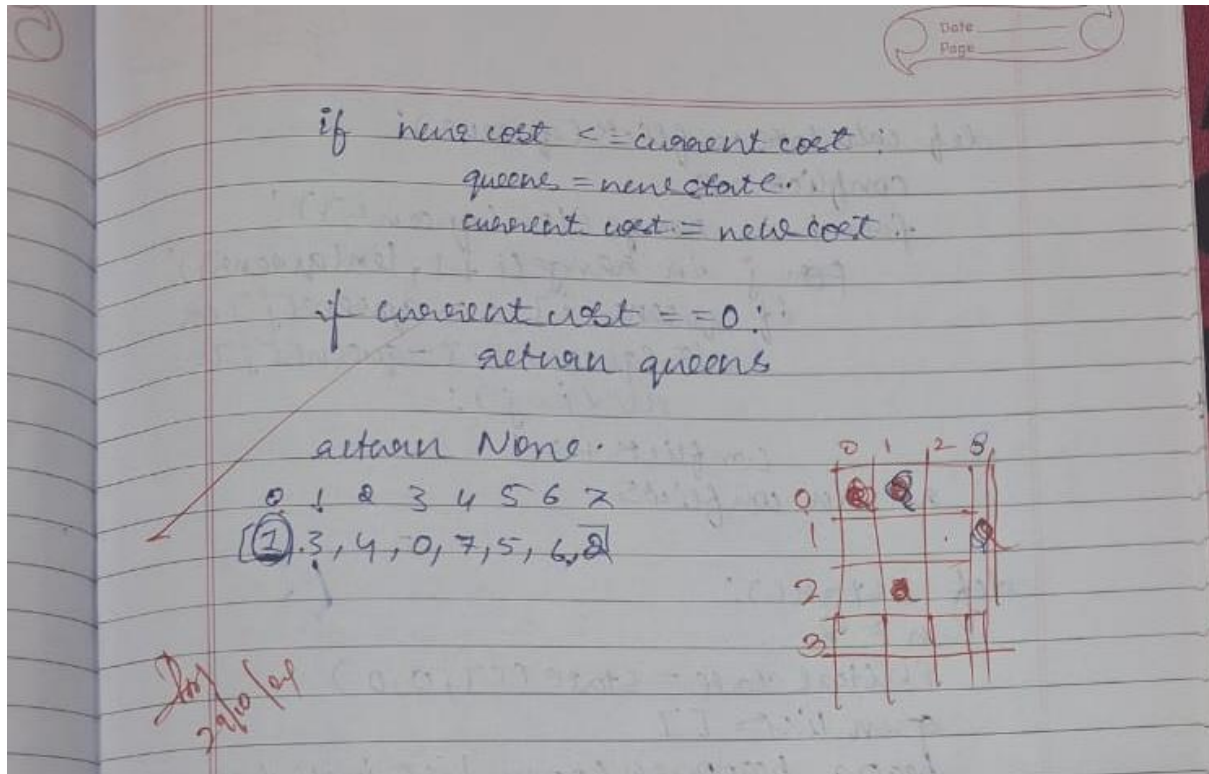 Date
Page
if new cost <= current cost :
queens = new state.
current cost = new cost.
if current cost == 0 :
return queens
return None.
0 1 2 3 4 5 6 7
[1, 3, 4, 0, 7, 5, 6, 2]
0 1 2 3
0
1
2
3
29/10/24